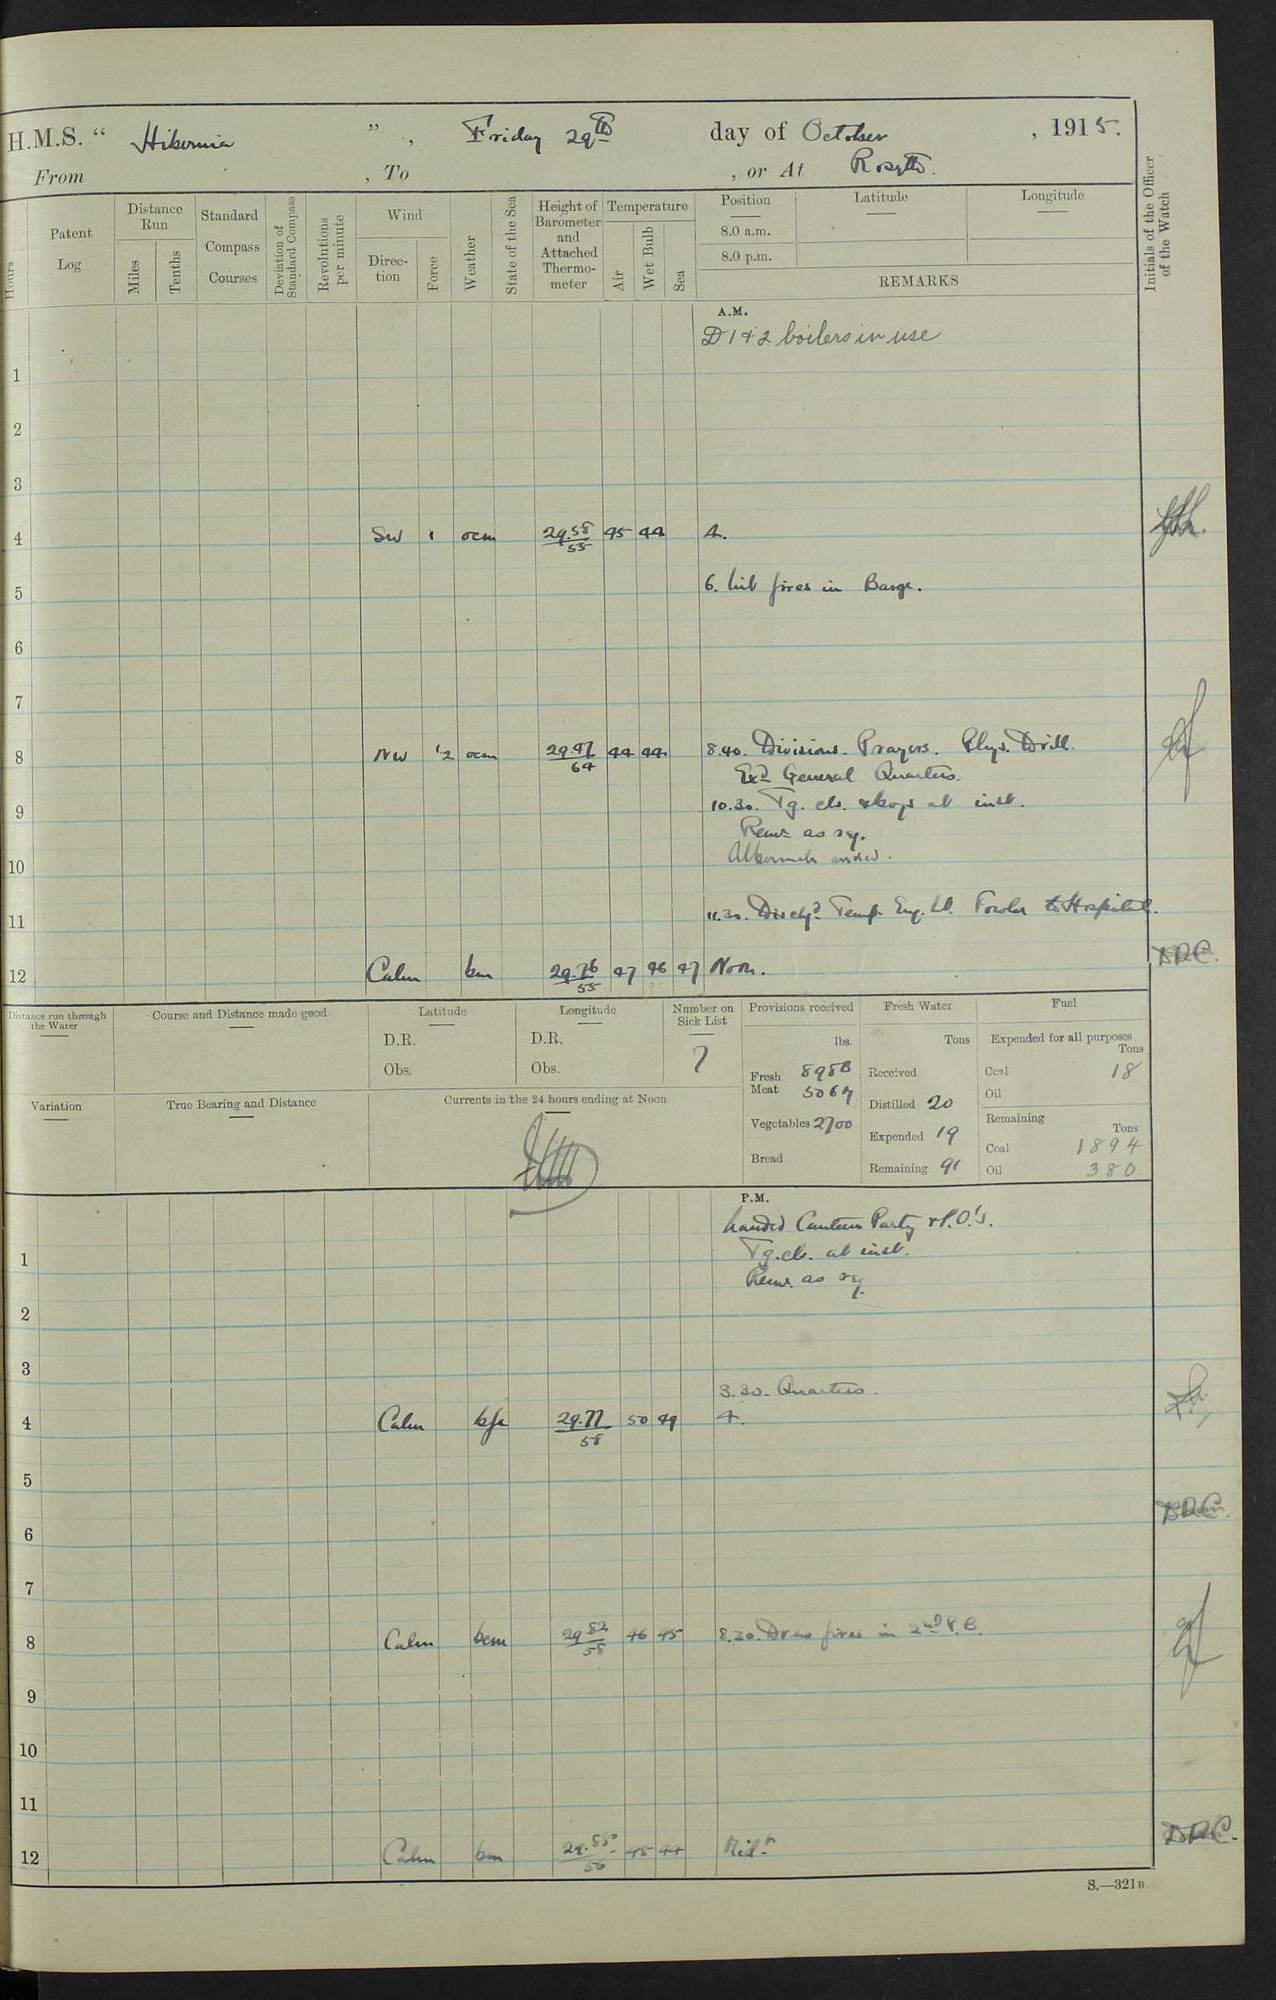 H.M.S. " Hibernia ", Friday 29th day of October, 1915.
From , To , or At Rosyth.
Hours
Patent Log
Distance Run
Miles
Tenths
Standard Compass Courses
Deviation of Standard Compass
Revolutions per minute
Wind
Direction
Force
Weather
State of the Sea
Height of Barometer and Attached Thermometer
Temperature
Air
Wet Bulb
Sea
Position
8.0 a.m.
8.0 p.m.
Latitude
Longitude
REMARKS
Initials of the Officer of the Watch
A.M.
D 1 & 2 boilers in use
1
2
3
4 SW 1 ocm 29.58 55 45 44 4.
5 6. Lit fires in Barge.
6
7
8 NW 1.2 ocm 29.47 64 44 44 8.40. Divisions. Prayers. Phys. Drill.
Exd General Quarters.
9 10.30. Tg. cls. & boys at inst.
Remr as rq.
10
11 11.30. Dischd Temp. Eng. Lt. Fowler to Hospital.
12 Calm bm 29.76 55 47 46 47 Noon. DRC.
Distance run through the Water
Course and Distance made good
Latitude
D.R.
Obs.
Longitude
D.R.
Obs.
Number on Sick List
7
Provisions received
lbs.
Fresh Meat 898B 5067
Vegetables 2700
Bread
Fresh Water
Tons
Received
Distilled 20
Expended 19
Remaining 91
Fuel
Expended for all purposes
Tons
Coal 18
Oil
Remaining
Tons
Coal 1894
Oil 380
Variation
True Bearing and Distance
Currents in the 24 hours ending at Noon
P.M.
Landed Canteen Party & P.O.'s.
1 Tg. cls. at inst.
Remr. as rq.
2
3
3.30. Quarters.
4 Calm 29.77 58 50 49 4.
5
DRC.
6
7
8 Calm bcm 29.82 58 46 45 8.30. Drew fires in 2nd P.B.
9
10
11
12 Calm bm 29.85 56 45 44 Midt DRC.
S.—321B.